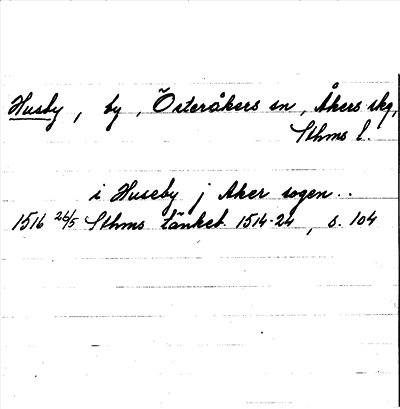 Husby, by, Österåkers sn, Åkers skg,
Sthms l.
i Huseby j Aker sogen..
1516 26/5 Sthms tänkeb. 1514-24, s. 104